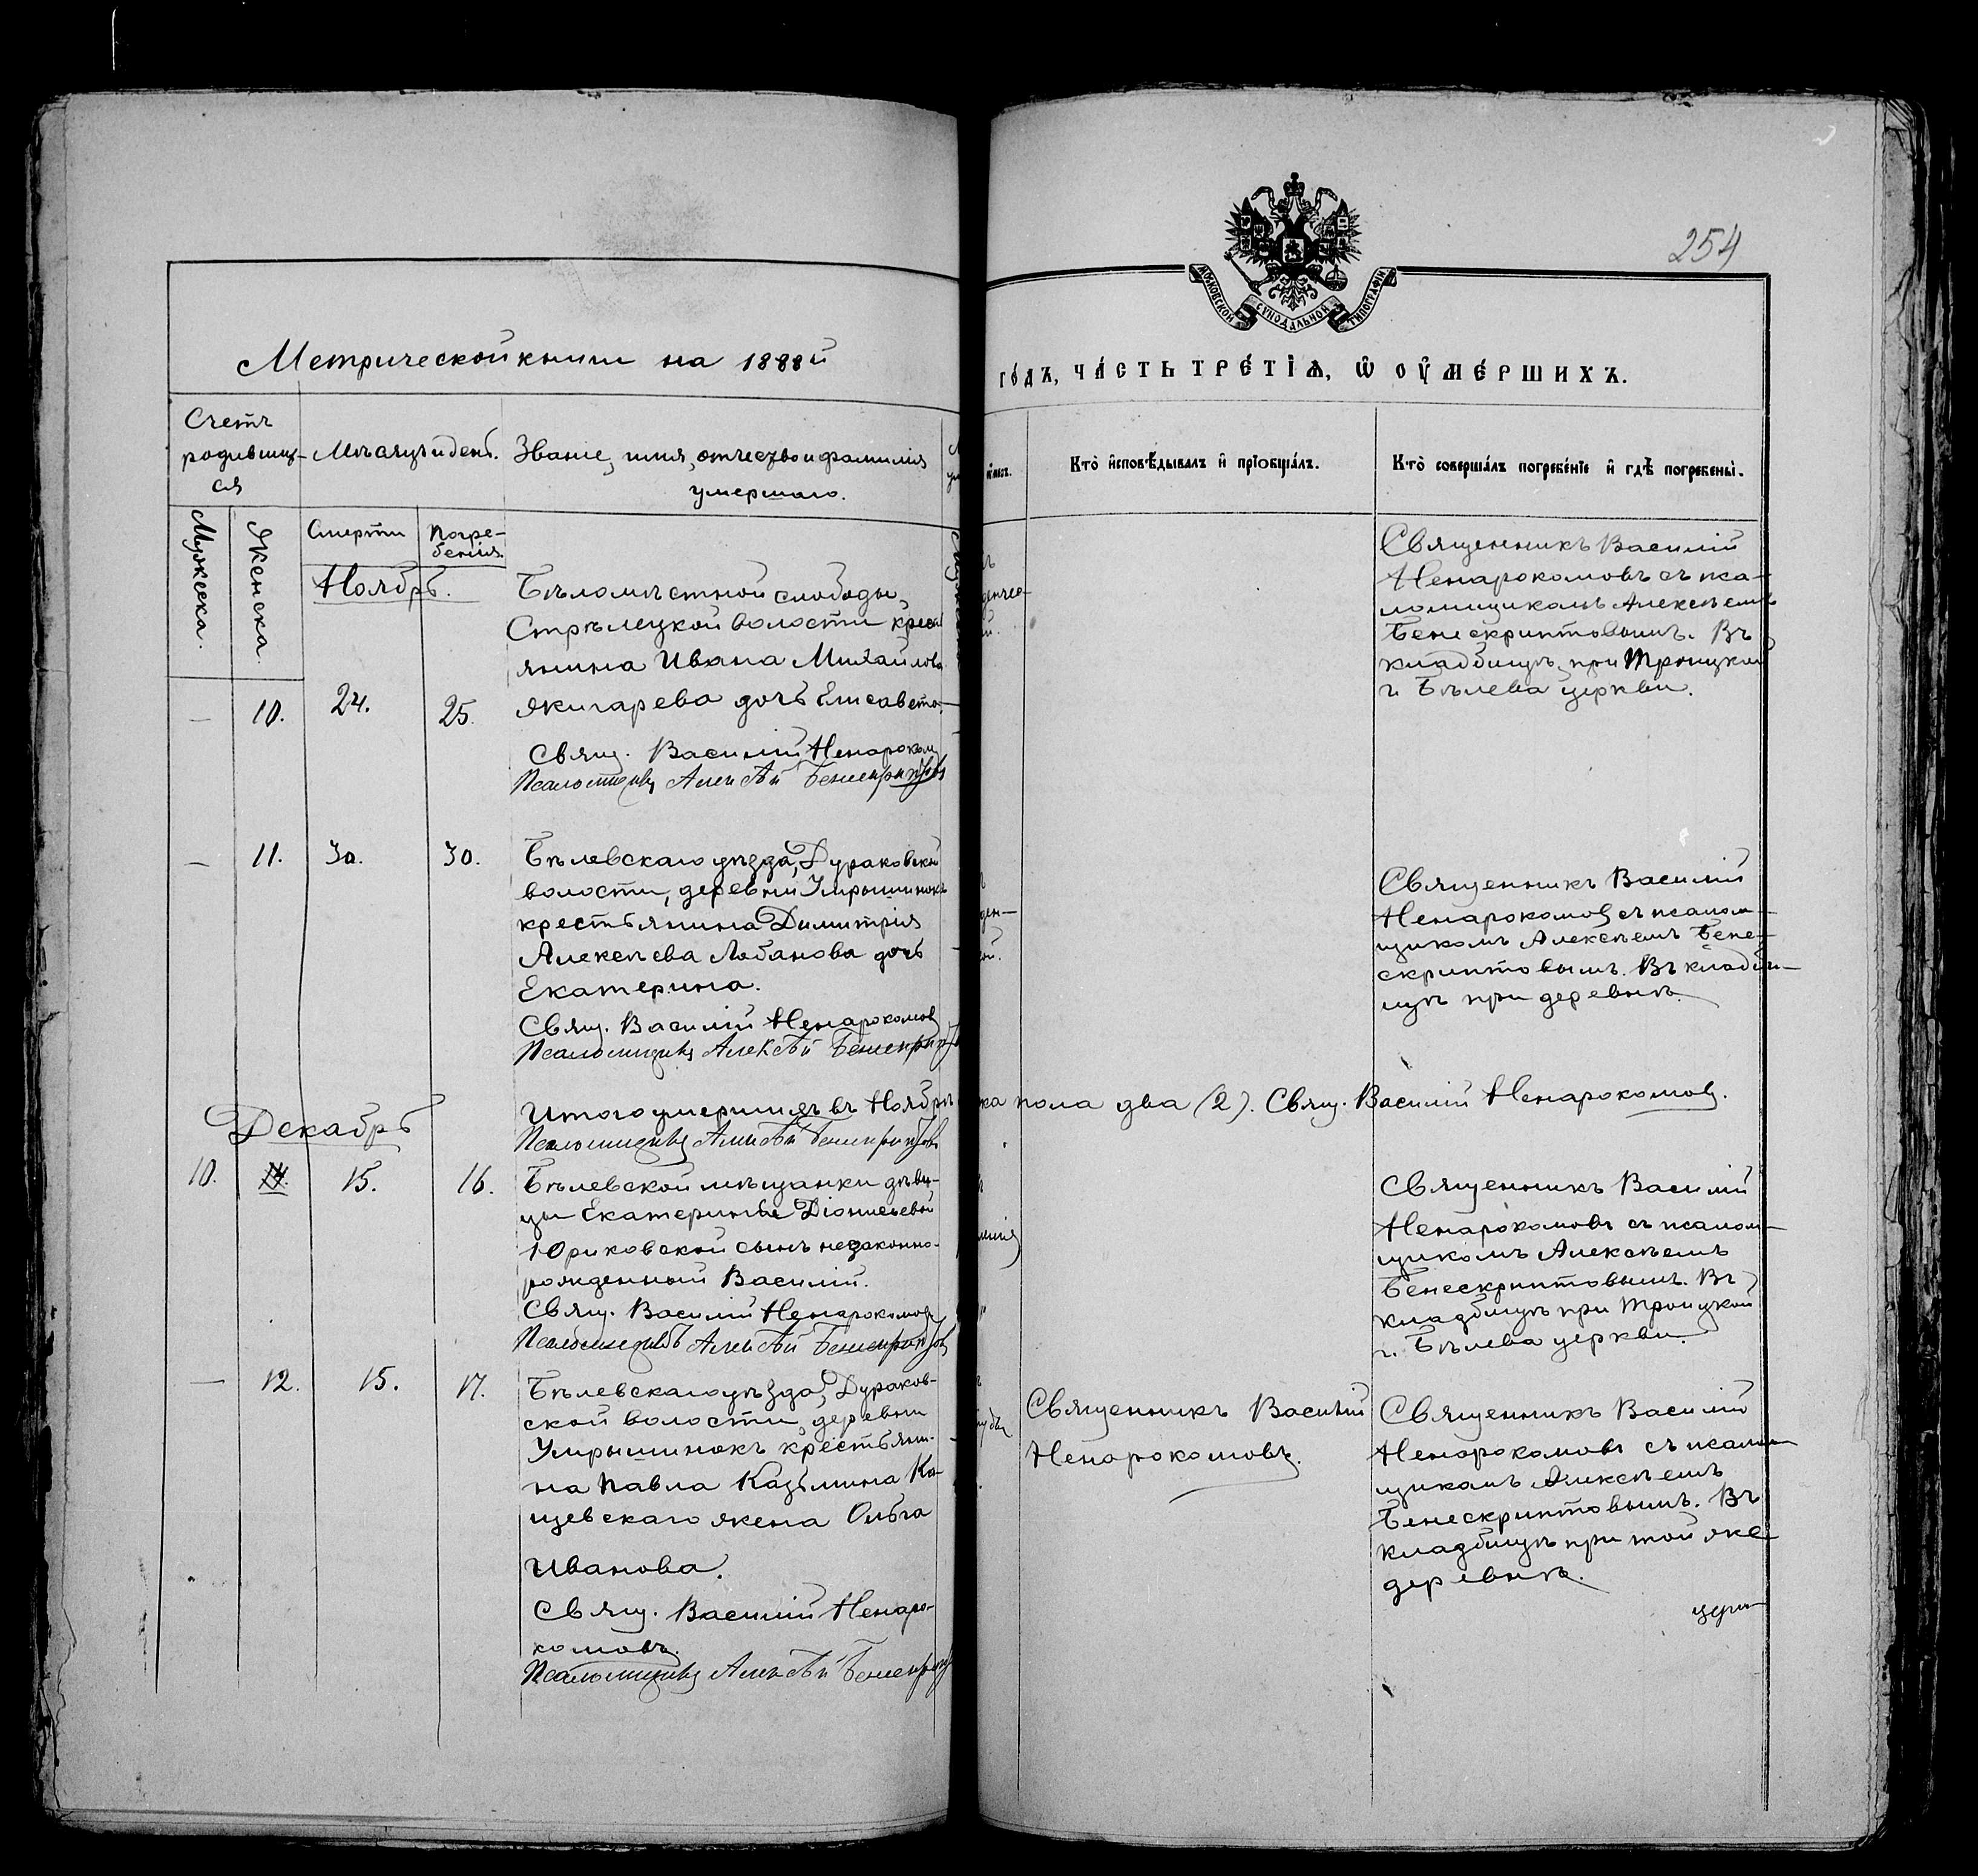 254
МОСКОВСКОЙ СѴНОДАЛЬНОЙ ТИПОГРАФІИ
Метрической книги на 1888й
го́дъ, ча́сть тре́тїѧ, ѡ҆ ᲂу҆ме́ршихъ.
Счетъ
родивших-
ся
Мѣсяцъ и день.
Званіе, имя, отчество и фамилія
умершаго.
Кто̀ и҆сповѣ́дывалъ и҆ прїобща́лъ.
Кто̀ соверша́лъ погребе́нїе и҆ гдѣ̀ погребены̀.
Мужеска.
Женска.
Смерти
Погре-
бенія.
Ноябрь.
—
10.
24.
25.
Бѣломѣстной слободы,
Стрѣлецкой волости крест
янина Ивана Михайлова
Жигарева дочь Елисавета.
Свящ. Василій Ненароком
Псаломщикъ Алексѣй Бенескриптовъ
Священникъ Василій
Ненарокомовъ съ пса-
ломщикомъ Алексѣемъ
Бенескриптовымъ. Въ
кладбищѣ при Троицкой
г. Бѣлева церкви.
—
11.
30.
30.
Бѣлевскаго уѣзда, Дураковской
волости, деревни Умрышинокъ
крестьянина Димитрія
Алексѣева Лобанова дочь
Екатерина.
Свящ. Василій Ненарокомовъ
Псаломщикъ Алексѣй Бенескрипт
ден-
ой.
Священникъ Василій
Ненарокомовъ съ псалом-
щикомъ Алексѣемъ Бене-
скриптовымъ. Въ кладби-
щѣ при деревнѣ.
Итого умершихъ въ Ноябрѣ
ка пола два (2). Свящ. Василій Ненарокомовъ.
Псаломщикъ Алексѣй Бенескриптовъ
Декабрь
10.
15.
16.
Бѣлевской мѣщанки дѣви-
цы Екатерины Діонисьевой
Юриковской сынъ незаконно-
рожденный Василій.
Свящ. Василій Ненарокомовъ
Псаломщикъ Алексѣй Бенескриптов
Священникъ Василій
Ненарокомовъ съ псалом-
щикомъ Алексѣемъ
Бенескриптовымъ. Въ
кладбищѣ при Троицкой
г. Бѣлева церкви.
—
12.
15.
17.
Бѣлевскаго уѣзда, Дураков-
ской волости, деревни
Умрышинокъ крестьяни-
на Павла Казьмина Ка-
щевскаго жена Ольга
Иванова.
Свящ. Василій Ненаро-
комовъ.
Псаломщикъ Алексѣй Бенескрипт
Священникъ Василій
Ненарокомовъ.
Священникъ Василій
Ненарокомовъ съ псалом
щикомъ Алексѣемъ
Бенескриптовымъ. Въ
кладбищѣ при той же
деревнѣ.